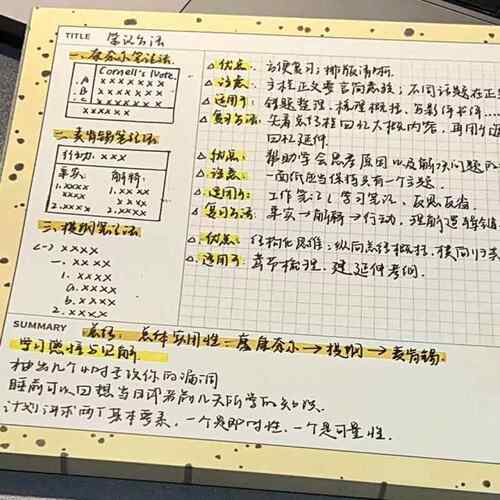 TITLE 学习方法
一、康奈尔笔记法
Cornell's Note.
.A xxxxxx
.B xxxxxx
.C xxxxxx
xxxxxxx
△优点: 方便复习; 排版清晰.
△注意: 主栏正文要言简意赅; 不同话题在正
△适用于: 错题整理, 梳理概括,
△复习方法: 先看总结栏回忆大概内容, 再用
回忆延伸.
二、麦肯锡笔记法
行动: xxx
事实: 解释:
1.xxxx 1.xxxx
xxxx xxxx
2.xxxx 2.xxxx
△优点: 帮助学会思考原因以及解决问题的
△注意: 一面纸应当保持只有一个主题.
△适用于: 工作笔记、学习笔记、反思反省.
△复习方法: 事实→解释→行动, 理解逻辑
三、提纲笔记法
(一) xxxx
一. xxxx
1. xxxx
a. xxxx
b. xxxx
2. xxxx
△优点: 结构化思维: 纵向总结概括, 横向归类
△适用于: 章节梳理,
SUMMARY 总结: 总体实用性: 康奈尔→提纲→麦肯锡
学习总结与见解
抽出几个小时去找你的漏洞
睡前可以回想当日和前几天所学的知识.
计划讲求两个基本要素, 一个是即时性, 一个是可量性.